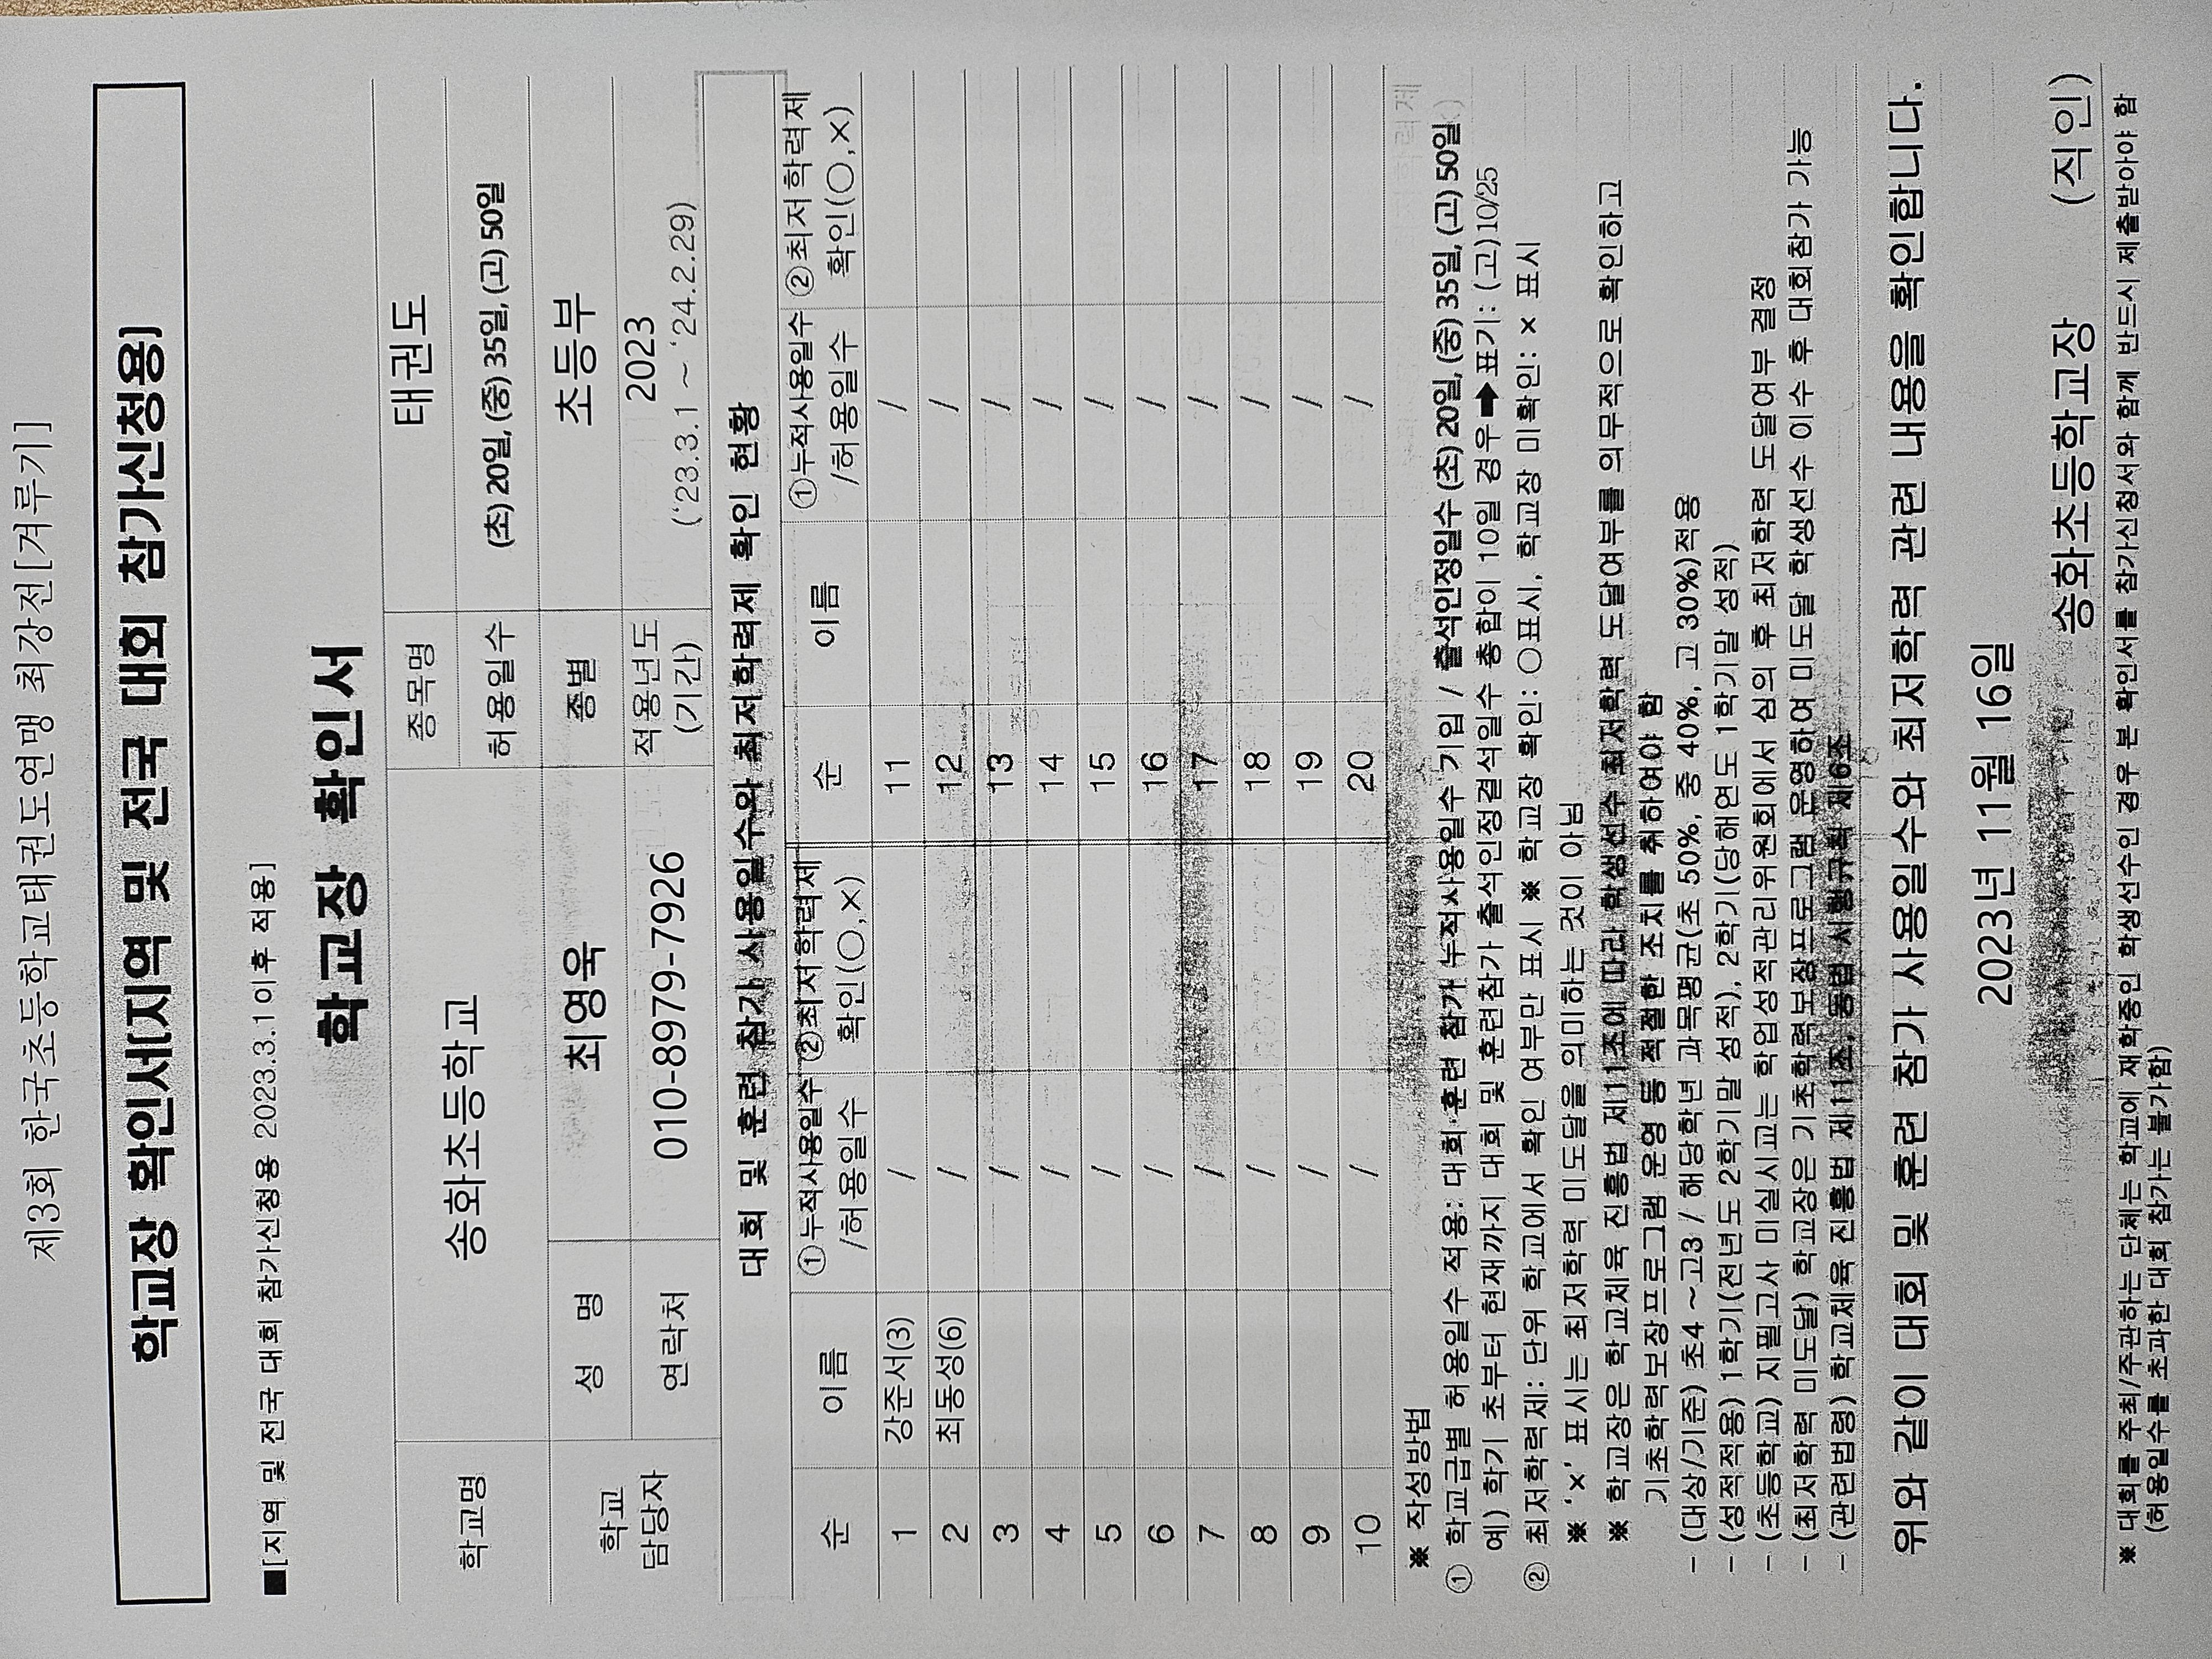 제3회 한국초등학교태권도연맹 최강전[겨루기]
학교장 확인서[지역 및 전국 대회 참가신청용]
■[지역 및 전국 대회 참가신청용 2023.3.1이후 적용]
학교장 확인서
학교명 송화초등학교 종목명 태권도
허용일수 (초) 20일, (중) 35일, (고) 50일
학교 담당자 성 명 최영욱 종별 초등부
연락처 010-8979-7926 적용년도 (기간) 2023
('23.3.1 ~ '24.2.29)
대회 및 훈련 참가 사용일수와 최저학력제 확인 현황
순 이름 ①누적사용일수 /허용일수 ②최저학력제 확인(○,×) 순 이름 ①누적사용일수 /허용일수 ②최저학력제 확인(○,×)
1 강준서(3) / 11 /
2 최동성(6) / 12 /
3 / 13 /
4 / 14 /
5 / 15 /
6 / 16 /
7 / 17 /
8 / 18 /
9 / 19 /
10 / 20 /
※ 작성방법
① 학교급별 허용일수 적용: 대회·훈련 참가 누적사용일수 기입 / 출석인정일수 (초) 20일, (중) 35일, (고) 50일
예) 학기 초부터 현재까지 대회 및 훈련참가 출석인정결석일수 총합이 10일 경우➡표기: (고)10/25
② 최저학력제: 단위 학교에서 확인 여부만 표시 ※ 학교장 확인: ○표시, 학교장 미확인: × 표시
※ '×' 표시는 최저학력 미도달을 의미하는 것이 아님
※ 학교장은 학교체육 진흥법 제11조에 따라 학생선수 최저학력 도달여부를 의무적으로 확인하고
기초학력보장프로그램 운영 등 적절한 조치를 취하여야 함
- (대상/기준) 초4 ~고3 / 해당학년 과목평균(초 50%, 중 40%, 고 30%)적용
- (성적적용) 1학기(전년도 2학기말 성적), 2학기(당해연도 1학기말 성적)
- (초등학교) 지필고사 미실시교는 학업성적관리위원회에서 심의 후 최저학력 도달여부 결정
- (최저학력 미도달) 학교장은 기초학력보장프로그램 운영하여 미도달 학생선수 이수 후 대회참가 가능
- (관련법령) 학교체육 진흥법 제11조, 동법 시행규칙 제6조
위와 같이 대회 및 훈련 참가 사용일수와 최저학력 관련 내용을 확인합니다.
2023년 11월 16일
송화초등학교장 (직인)
※ 대회를 주최/주관하는 단체는 학교에 재학중인 학생선수인 경우 본 확인서를 참가신청서와 함께 반드시 제출받아야 함
(허용일수를 초과한 대회 참가는 불가함)